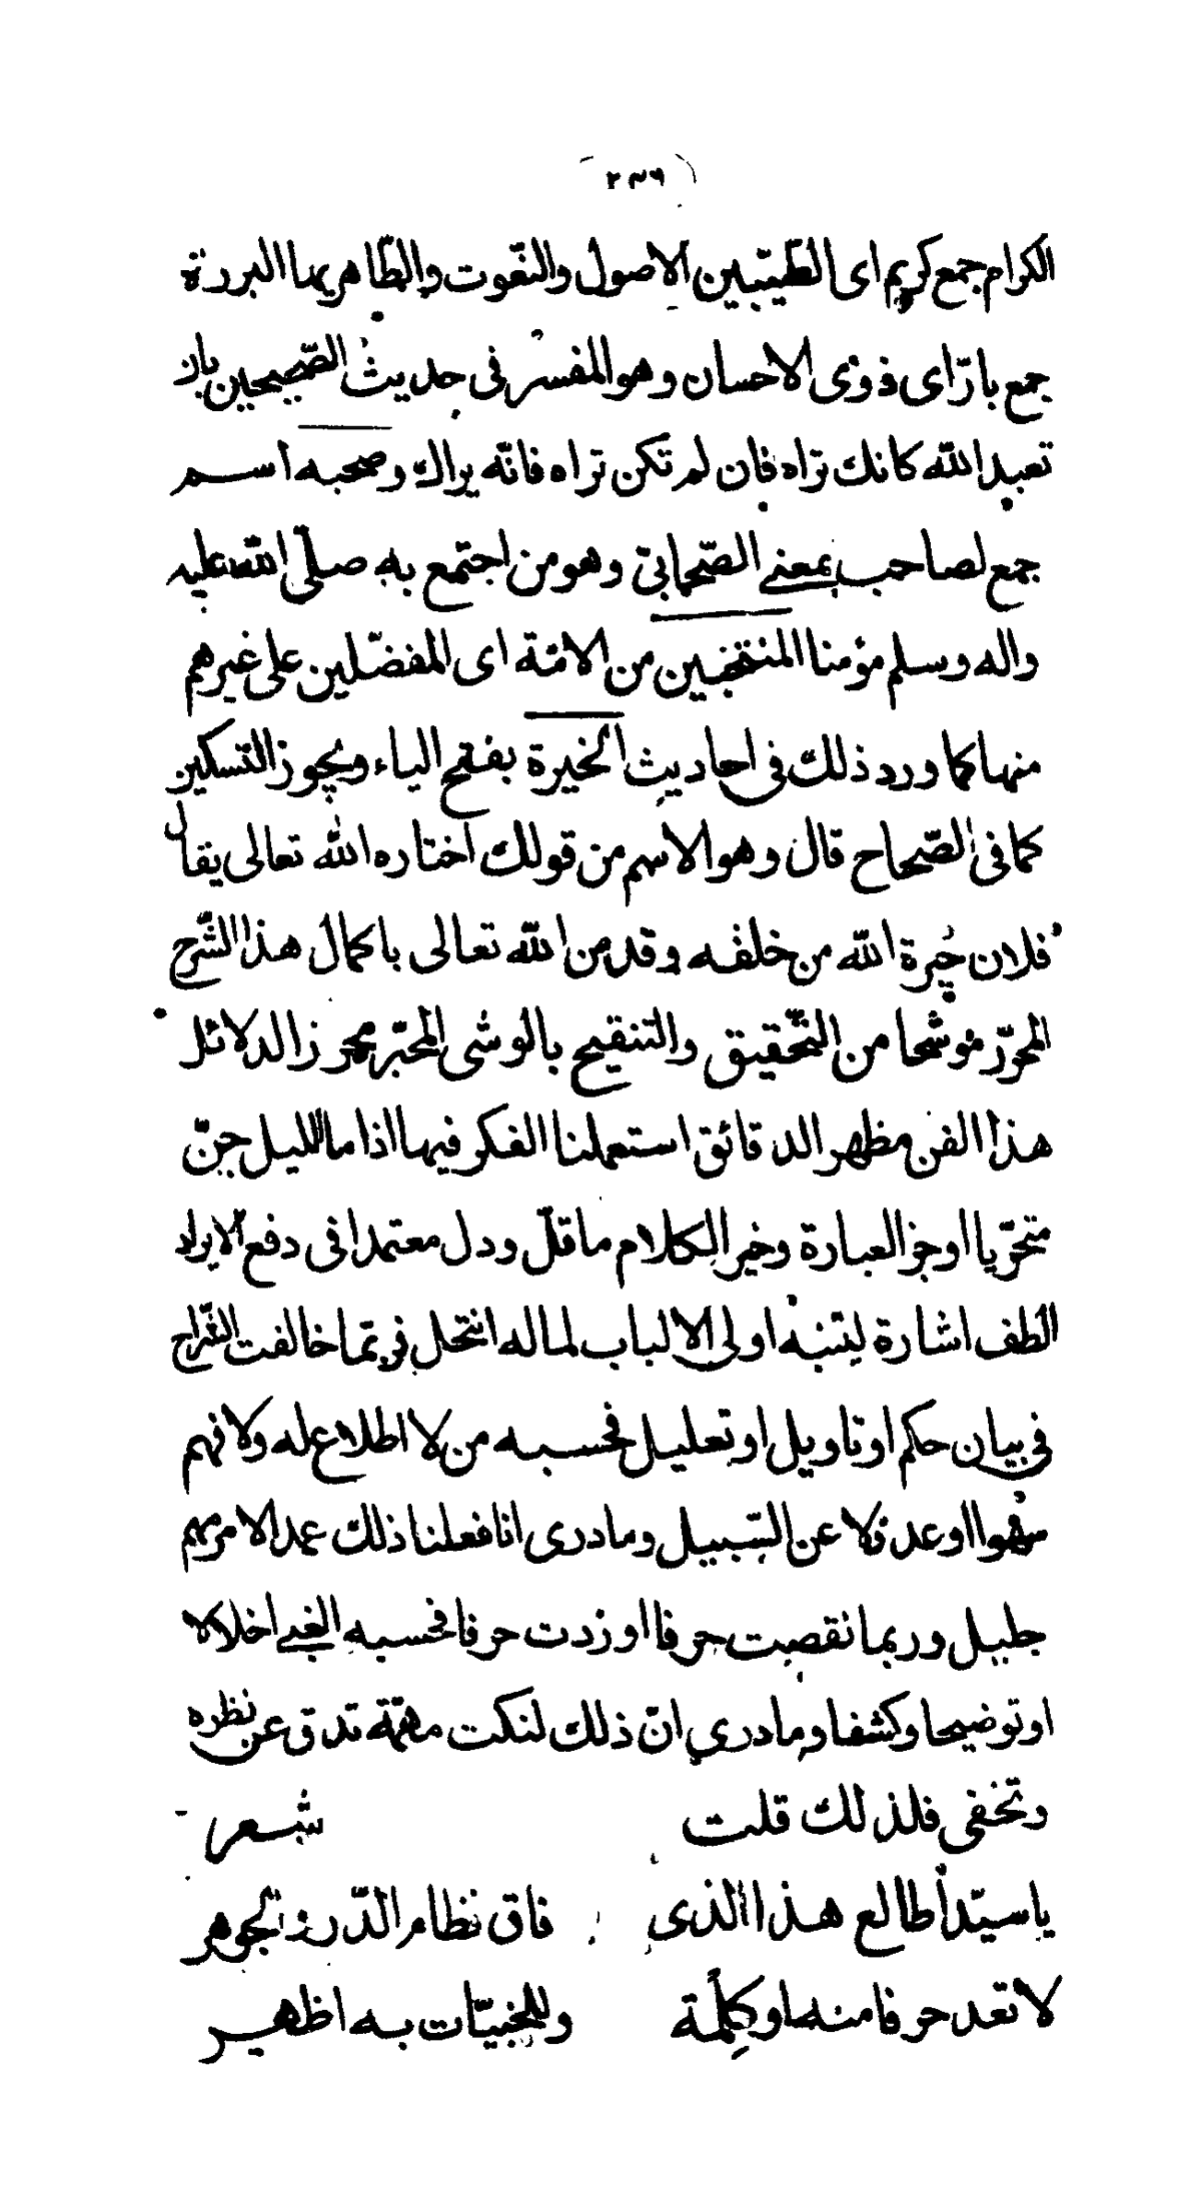 (٢٣٦)
الكرام جمع كريم اى الطيّبين الاصول والنّعوت والطّاهريها البررة
جمع بارّ اى ذوى الاحسان وهو المفسر فى حديث الصّحيحين بان
تعبد الله كانك تراه فان لم تكن تراه فانّه يراك وصحبه اسم
جمع لصاحب بمعنى الصّحابىّ وهو من اجتمع به صلّى الله عليه
واله وسلم مؤمنا المنتخبين من الامّة اى المفضّلين على غيرهم
منها كما ورد ذلك فى احاديث الخيرة بفتح الياء ويجوز التسكين
كما فى الصّحاح قال وهو الاسم من قولك اختاره الله تعالى يقال
فلان خيرة الله من خلقه وقد من الله تعالى باكمال هذا الشّرح
المحرّر موشحا من التّحقيق والتنقيح بالوشى المحبّر محرز الدلائل
هذا الفن مظهر الدقائق استعملنا الفكر فيها اذا ما الليل جنّ
متحرّيا اوجز العبارة وخير الكلام ما قلّ ودل معتمدا فى دفع الايراد
الطف اشارة ليتنبه اولى الالباب لما له انتحل فربّما خالفت الشّراح
فى بيان حكم او تاويل او تعليل فحسبه من لا اطلاع له ولا فهم
سهوا او عدولا عن السّبيل وما درى انا فعلنا ذلك عمدا لامر مهم
جليل وربما نقصت حرفا او زدت حرفا فحسبه الغبى اخلالا
او توضيحا وكشفا وما درى انّ ذلك لنكت مهمّة تدق عن نظره
وتخفى فلذلك قلت شعر
يا سيّدا طالع هذا الذى فاق نظام الدّر والجوهر
لا تعد حرفا منه او كلمة وللخبيّات به اظهر